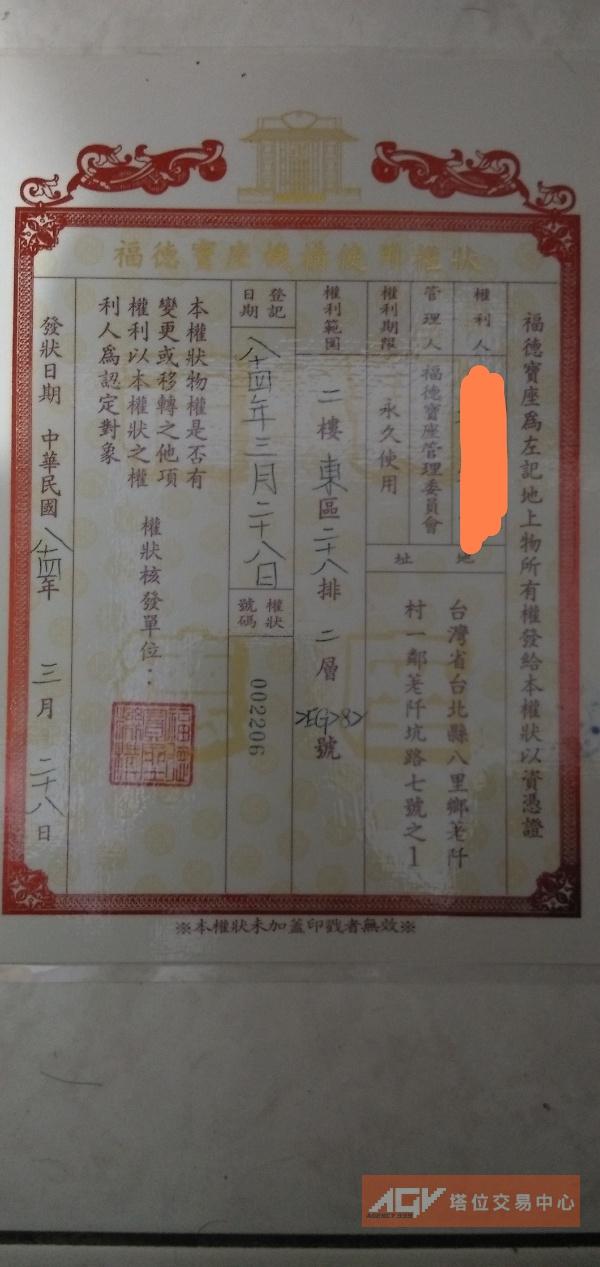 福德寶座機構使用權狀
福德寶座為左記地上物所有權發給本權狀以資憑證
權利人
管理人
福德寶座管理委員會
權利期限
永久使用
地址
台灣省台北縣八里鄉荖阡
村一鄰荖阡坑路七號之1
權利範圍
二樓東區二十八排二層
號
登記
日期
八十四年三月二十八日
權狀
號碼
002206
本權狀物權是否有
變更或移轉之他項
權利以本權狀之權
利人為認定對象
權狀核發單位：
發狀日期 中華民國八十四年三月二十八日
※本權狀未加蓋印戳者無效※
AGV
AGENCY 999
塔位交易中心